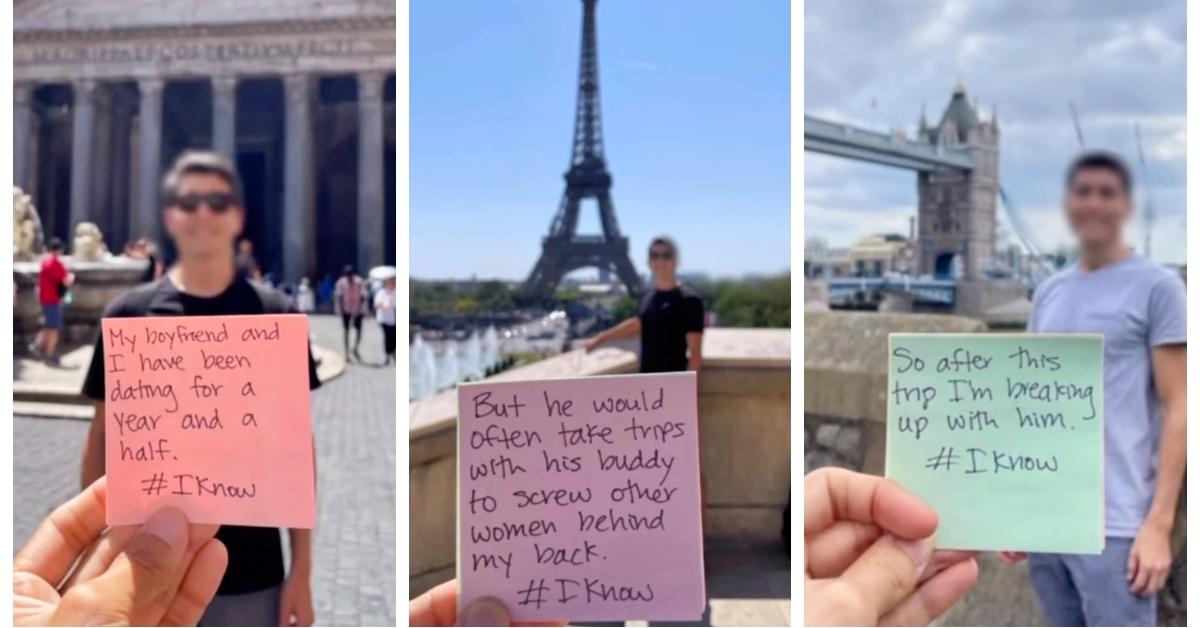 My boyfriend and
I have been
dating for a
year and a
half.
#IKnow
But he would
often take trips
with his buddy
to screw other
women behind
my back.
#IKnow
So after this
trip I'm breaking
up with him.
#IKnow